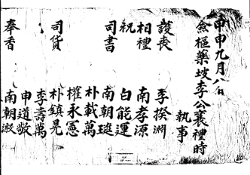 甲申九月八日
僉樞藥坡李公襄禮時
執事
護喪 李淵
相禮 南孝源
祝 白能運
司書 南朝
朴載萬
司貨 權永憲
朴鎭
李壽萬
奉香 申道
南朝淑